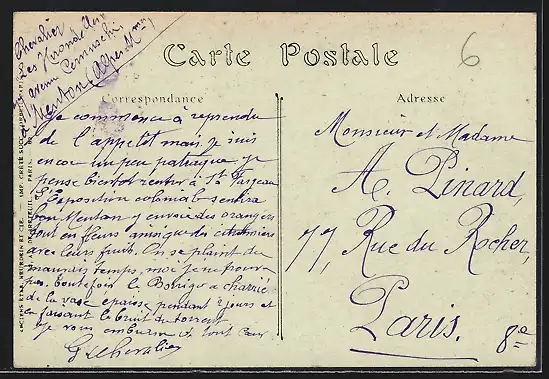 Chevalier
Les Hirondelles
avenue Cernuschi
Menton (Alpes Mmes)
6
Carte Postale
Correspondance
Adresse
Je commence à reprendre
de l'appétit mais je suis
encor un peu patraque. je
pense bientot rentrer à St Fargeau
l'Exposition coloniale sentira
son Menton j'y envoie des orangers
tout en fleurs ainsi que du citronniers
avec leurs fruits. On se plaint du
mauvais temps, moi je ne pouvais
pas. toutefois le Borrigo a charrié
de la vase epaisse pendant 2 jours et
en faisant le bruit de torrent
je vous embrasse de tout cœur
G Chevalier
Monsieur et Madame
A. Pinard,
77, Rue du Rocher,
Paris.
8e